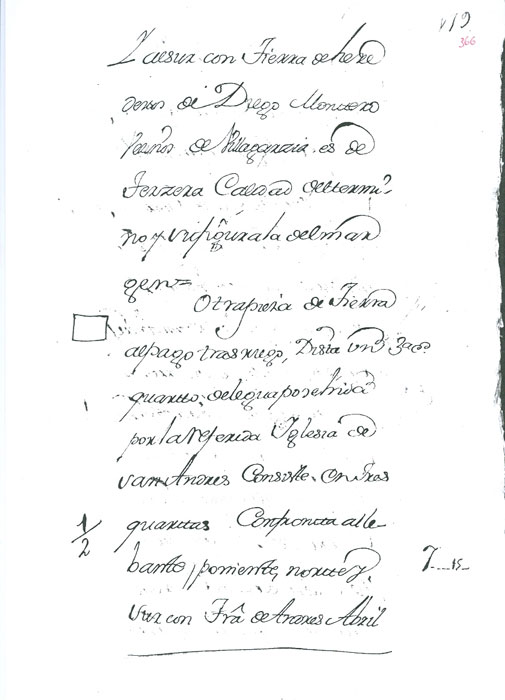 V19
366
Y al sur con Tierra de here
deros, de Diego Montero
Vecinos de Villagarzia. es de
Terzera Calidad del termi-
no y su figura la del mar
gen=
Otra pieza de Tierra
al pago tras
quartos, de legua posehida
por la referida Iglesia de
san Andres Consiste. en tres
quartas Confronta a lle-
1/2
bante, poniente, norte y
sur con Trâ de Andres Abril
7__15_